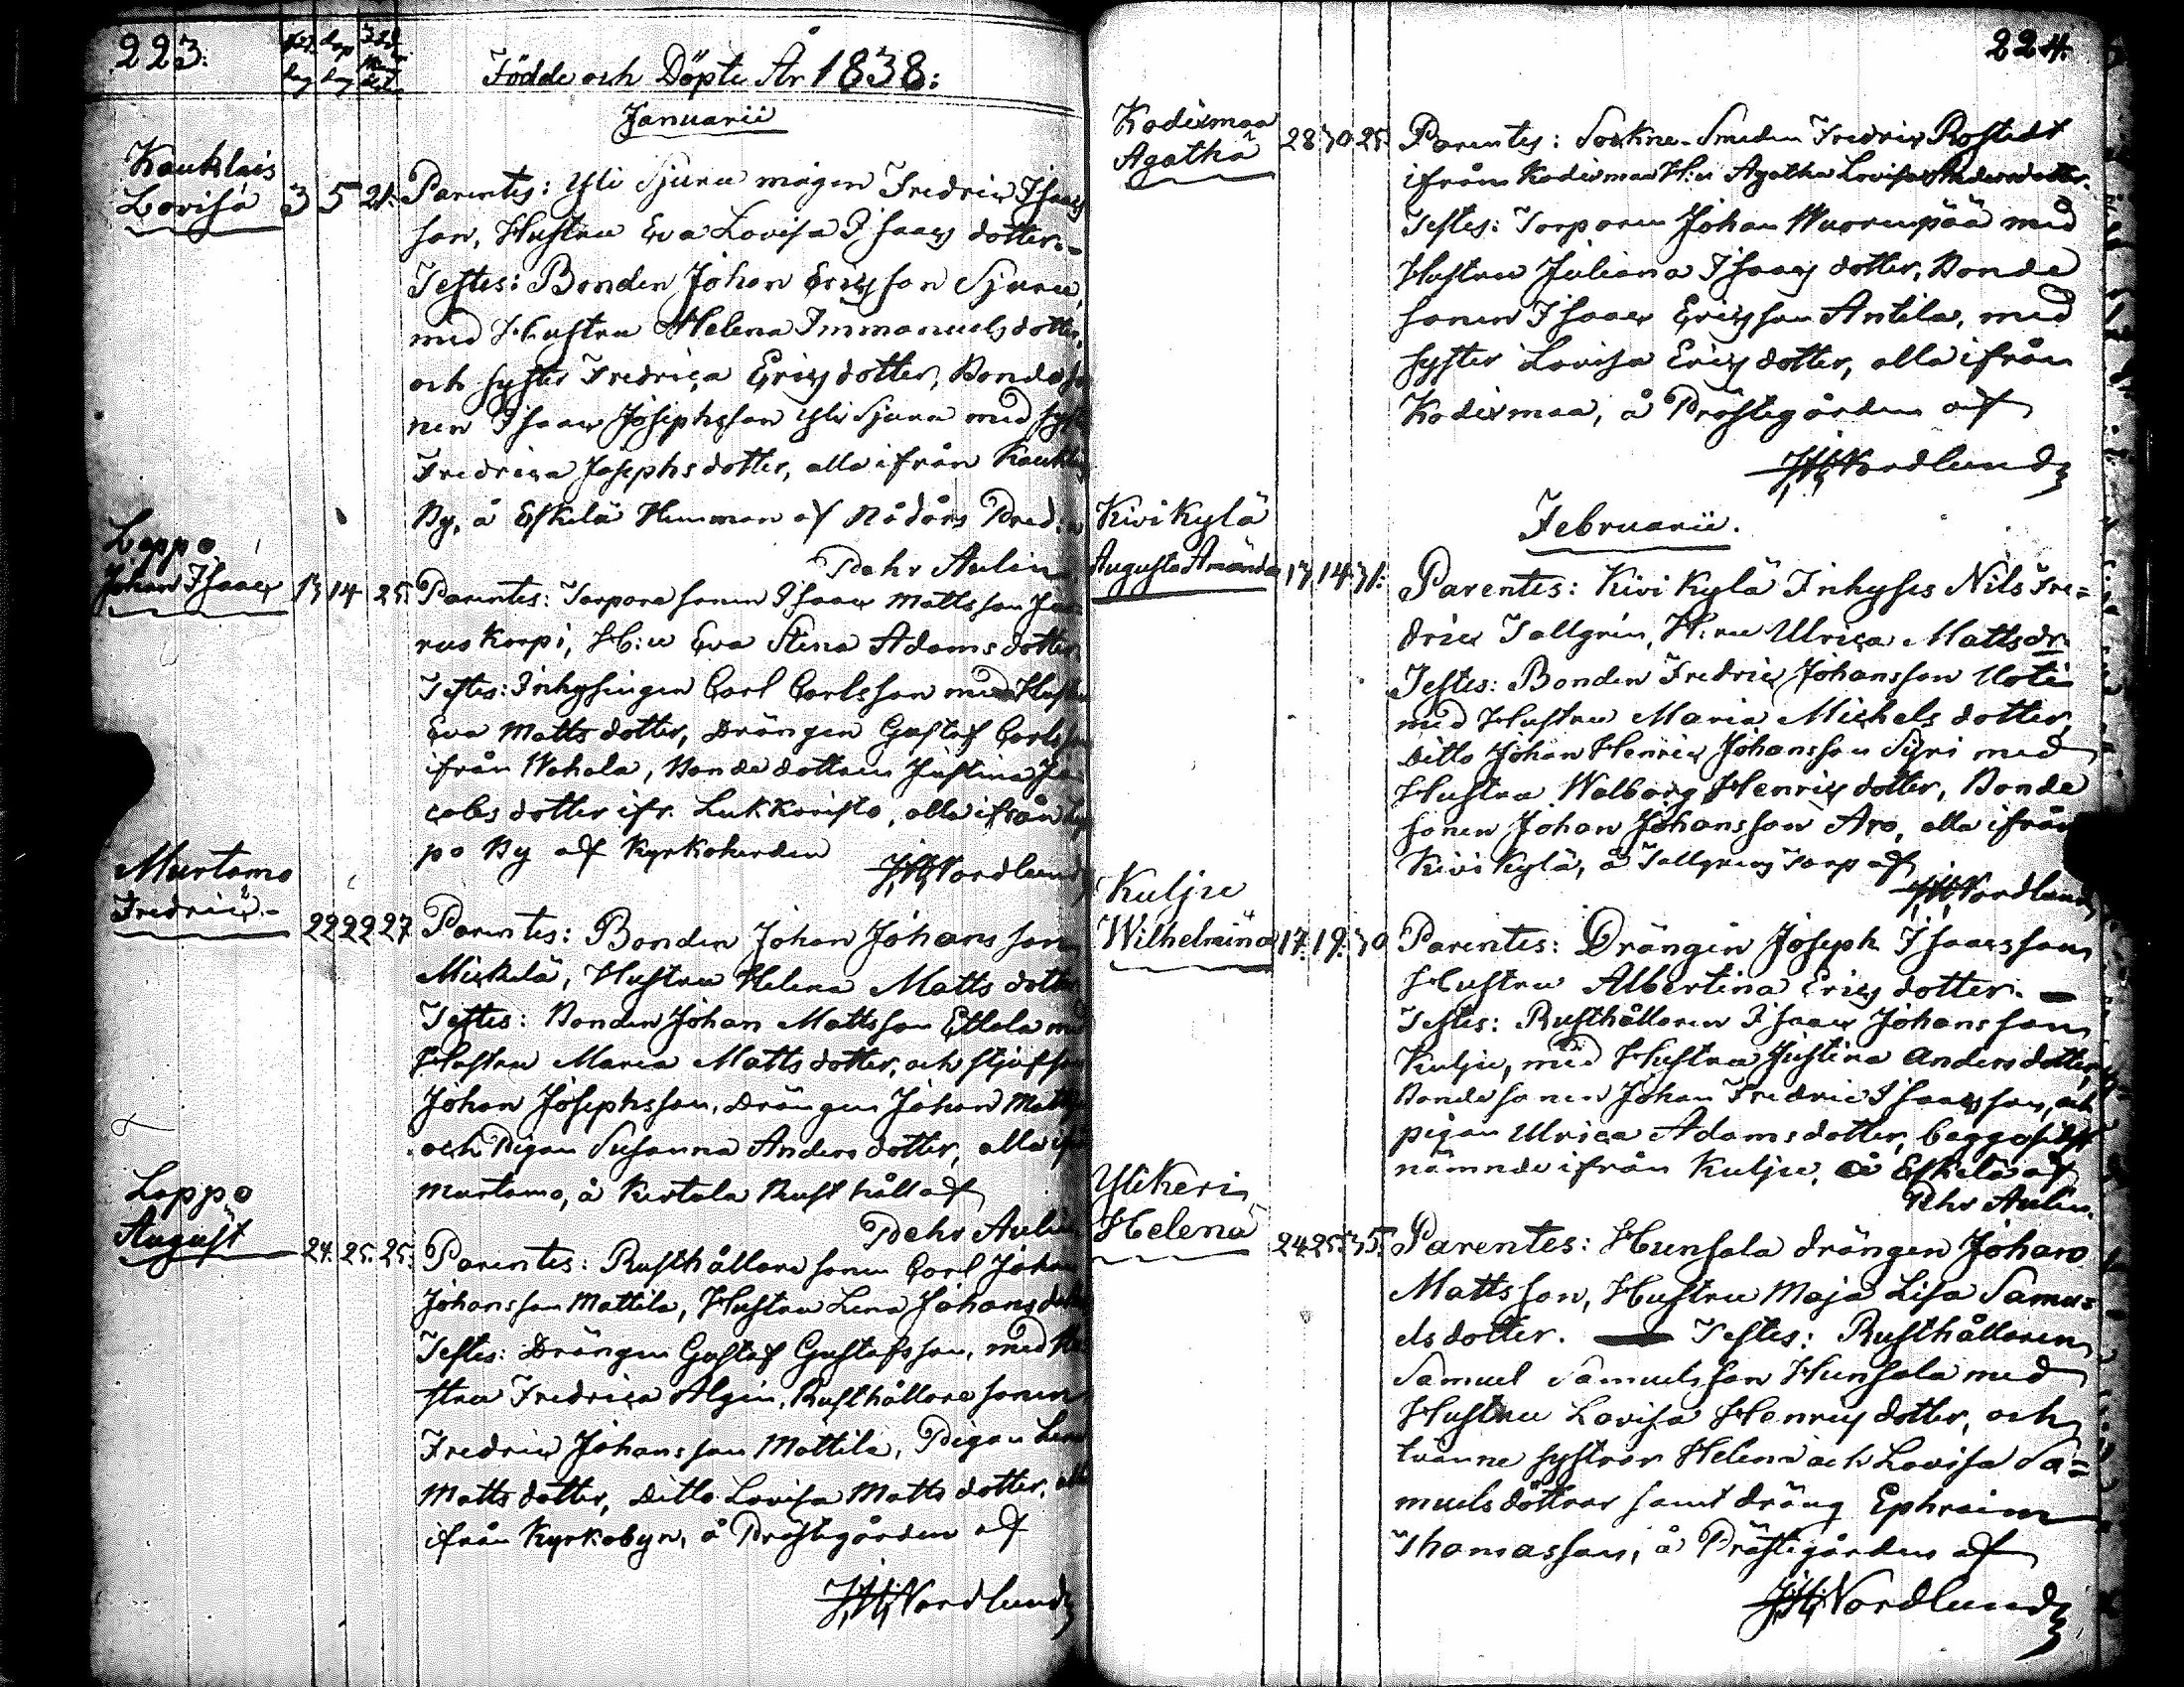 223.
Föd. dag döp dag
Födde och Döpte År 1838:
Januarii
Kauklais
Lovisa 3 5 21.
Parentes: Yli Sjuru mågen Fredric Isaacs
son, Hustru Eva Lovisa Isaacs dotter.-
Testes: Bonden Johan Ericsson Sjuru,
med Hustru Helena Immanuels dotter,
och syster Fredrica Erics dotter, Bondeso
nen Isaac Josephsson Yli Sjuru med syst
Fredrica Josephs dotter, alla ifrån Kaukla
By, å Eskilä Hemman af Nådårs Pred.
Pehr Aulin
Loppo
Johan Isaac 13 14 25.
Parentes: Torpare sonen Isaac Mattsson Ja
ruskorpi, H:u Eva Stina Adams dotter
Testes: Inhysingen Carl Carlsson med Hustru
Eva Matts dotter, Drängen Gustaf Carlsson
ifrån Wohola, Bonde dottern Justina Ja
cobs dotter ifr. Lukkaristo, alla ifrån Lop
po By af Kyrkoherden
J. H. Nordlund
Murtamo
Fredric.- 22 22 27
Parentes: Bonden Johan Johansson
Mickelä, Hustru Helena Matts dotter
Testes: Bonden Johan Mattsson Ettala med
Hustru Maria Matts dotter, och stjufson
Johan Josephsson, Drängen Johan Matts
och Pigan Susanna Anders dotter, alla ifr
Murtamo, å Kertala Rusthåll af
Pehr Aulin
Loppo
August 24. 25. 25.
Parentes: Rusthållare sonen Carl Johan
Johansson Mattila, Hustru Lena Johans dotter
Testes: Drängen Gustaf Gustafsson, med Hu
stru Fredrica Algin, Rusthållare sonen
Fredric Johansson Mattila, Pigan Lena
Matts dotter, Ditto Lovisa Matts dotter, alla
ifrån Kyrkobyn, å Prästegården af
J. H. Nordlund
224.
Kodixmaa
Agatha 28 30 25.
Parentes: Sockne-Smeden Fredric Rostedt
ifrån Kodixmaa H:u Agatha Lovisa Anders dotter.
Testes: Torparen Johan Wuorenpää med
Hustru Juliana Isaacs dotter, Bonde
sonen Isaac Ericsson Antila, med
syster Lovisa Erics dotter, alla ifrån
Kodixmaa, å Prästegården af
J. H. Nordlund
Februarii.
Kivikylä
Augusta Amanda 13 14 31.
Parentes: Kivikylä Inhyses Nils Fre=
dric Tallgrén, H:ru Ulrica Mattsdr
Testes: Bonden Fredric Johansson Uoti
med Hustru Maria Michels dotter,
Ditto Johan Henric Johansson Syri med
Hustru Walborg Henrics dotter, Bonde
sonen Johan Johansson Aro, alla ifrån
Kivikylä, å Tallgréns Torp af
J. H. Nordlund
Kulju
Wilhelmina 17. 19. 30
Parentes: Drängen Joseph Isaacsson
Hustru Albertina Erics dotter. —
Testes: Rusthållaren Isaac Johansson
Kulju, med Hustru Justina Anders dotter,
Bonde sonen Johan Fredric Isaacsson, och
pigan Ulrica Adams dotter, bägge sist
nämnde ifrån Kulju, å Eskilä af
Pehr Aulin.
Ylikeri
Helena 24. 25. 35.
Parentes: Hunsala drängen Johan
Mattsson, Hustru Maja Lisa Samu=
els dotter. — Testes: Rusthållaren
Samuel Samuelsson Hunsala med
Hustru Lovisa Henrics dotter, och
tvänne systrar Helena och Lovisa Sa=
muels döttrar samt dräng Ephraim
Thomasson, å Prästegården af
J. H. Nordlund